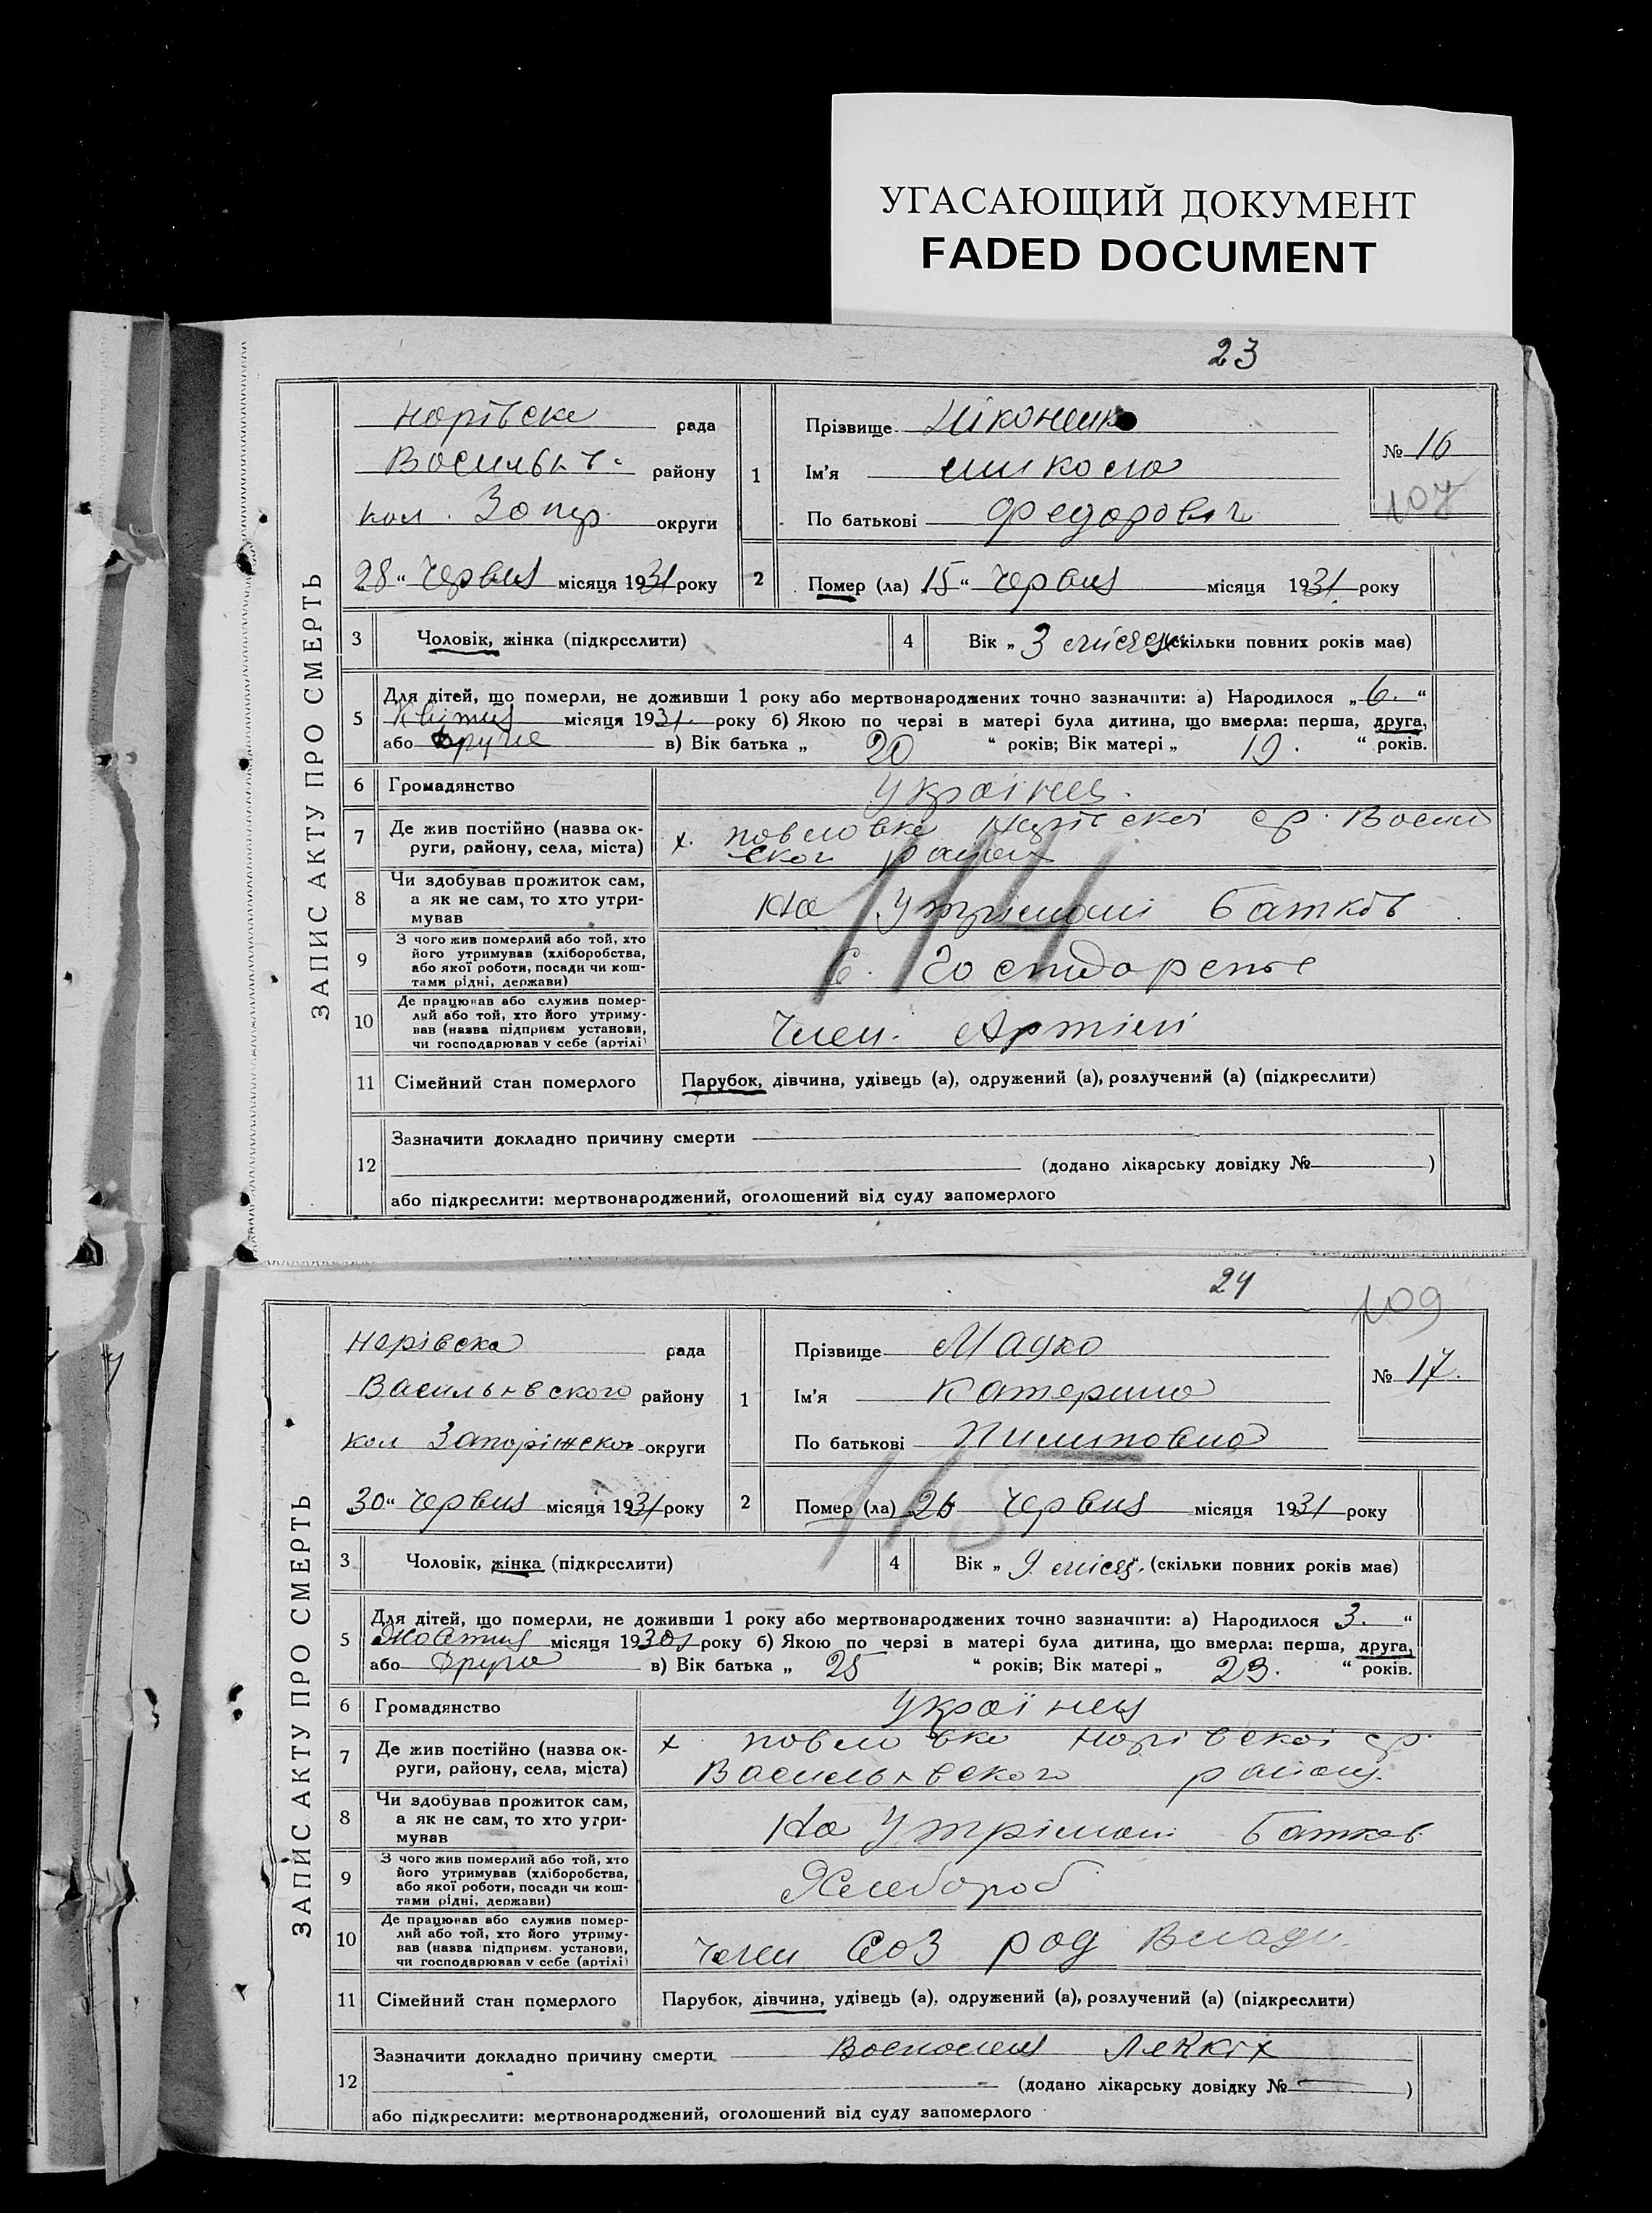 УГАСАЮЩИЙ ДОКУМЕНТ
FADED DOCUMENT
23
ЗАПИС АКТУ ПРО СМЕРТЬ
рада
району
кол. Запор. округи
„28“ Червня місяця 1931 року
1
Прізвище Ніконенко
Ім'я Микола
По батькові Федорович
№ 16
107
2
Помер (ла) 15“ Червня місяця 1931 року
3 Чоловік, жінка (підкреслити)
4 Вік „ 3 місяця (скільки повних років має)
5 Для дітей, що померли, не доживши 1 року або мертвонароджених точно зазначити: а) Народилося „6.“
Квітня місяця 1931 року б) Якою по черзі в матері була дитина, що вмерла: перша, друга,
або друга в) Вік батька „ 20 “ років; Вік матері „ 19. “ років.
6 Громадянство Українец.
7 Де жив постійно (назва округи, району, села, міста) х. Павловка ср. Васил
ског району
114
8 Чи здобував прожиток сам, а як не сам, то хто утримував На Утрімані Батків
9 З чого жив померлий або той, хто його утримував (хліборобства, або якої роботи, посади чи коштами рідні, держави) С.
10 Де працював або служив померлий або той, хто його утримував (назва підприєм установи, чи господарював у себе (артілі) Член. Артілі
11 Сімейний стан померлого Парубок, дівчина, удівець (а), одружений (а), розлучений (а) (підкреслити)
12 Зазначити докладно причину смерти
(додано лікарську довідку № )
або підкреслити: мертвонароджений, оголошений від суду запомерлого
24
109
ЗАПИС АКТУ ПРО СМЕРТЬ
Нерівска рада
Васильивского району
кол Запоріжског округи
„30“ Червня місяця 1931 року
1
Прізвище Мацко
Ім'я Катерина
По батькові Пилиповна
№ 17.
115
2
Помер (ла) 26 Червня місяця 1931 року
3 Чоловік, жінка (підкреслити)
4 Вік „ 9 місяц. (скільки повних років має)
5 Для дітей, що померли, не доживши 1 року або мертвонароджених точно зазначити: а) Народилося 3. “
Жовтня місяця 1930 року б) Якою по черзі в матері була дитина, що вмерла: перша, друга,
або друга в) Вік батька „ 25 “ років; Вік матері „ 23. “ років.
6 Громадянство Українец
7 Де жив постійно (назва округи, району, села, міста) х. Павловка Нерівскоі ср.
Васильивского району.
8 Чи здобував прожиток сам, а як не сам, то хто утримував На Утрімані Батков
9 З чого жив померлий або той, хто його утримував (хліборобства, або якої роботи, посади чи коштами рідні, держави) Хлебороб
10 Де працював або служив померлий або той, хто його утримував (назва підприєм. установи, чи господарював у себе (артілі) Член Соз рад Влади
11 Сімейний стан померлого Парубок, дівчина, удівець (а), одружений (а), розлучений (а) (підкреслити)
12 Зазначити докладно причину смерти Легкіх
(додано лікарську довідку № — )
або підкреслити: мертвонароджений, оголошений від суду запомерлого